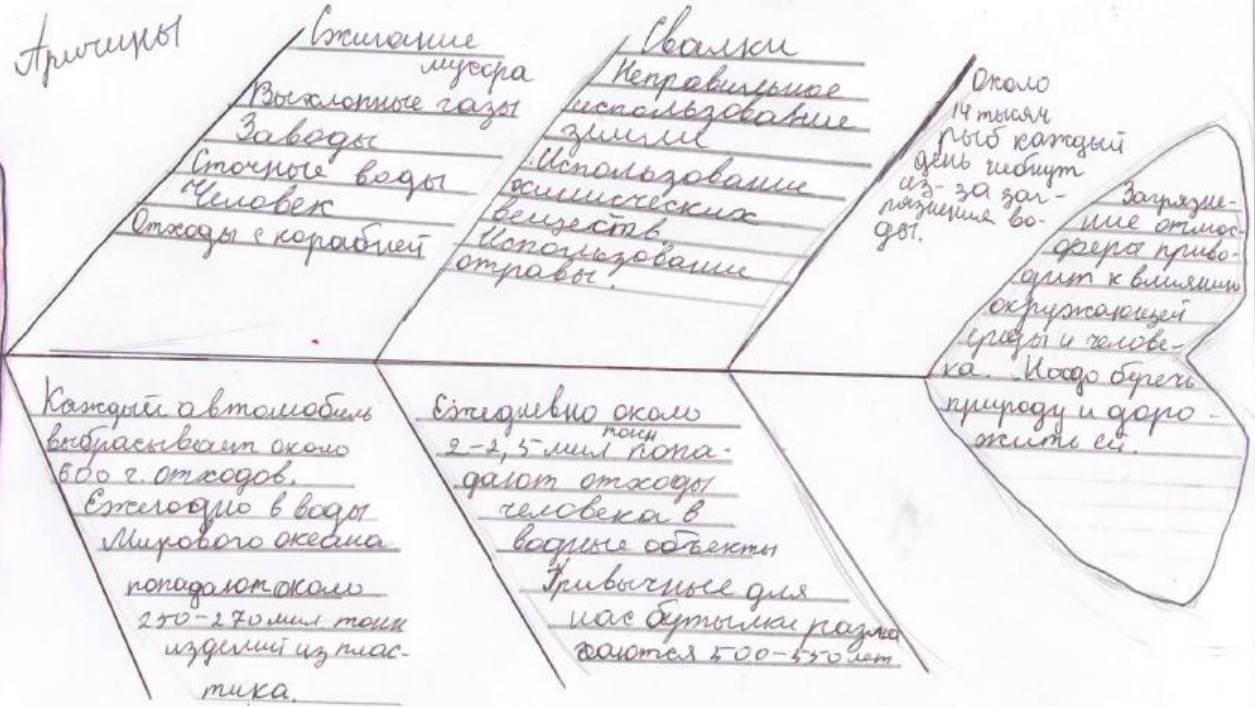 Причины
Сжигание
мусора
Выхлопные газы
Заводы
Сточные воды
Человек
Отходы с кораблей
Свалки
Неправильное
использование
земли.
Использование
химических
веществ.
Использование
отравы.
Около
14 тысяч
рыб каждый
день гибнут
из-за заг-
рязнения во-
ды.
Загрязне-
ние атмос-
феры приво-
дит к влиянию
окружающей
среды и челове-
ка. Надо беречь
природу и доро-
жить ей.
Каждый автомобиль
выбрасывает около
600 г. отходов.
Ежегодно в воды
Мирового океана
попадают около
250-270 мил тонн
изделий из плас-
тика.
Ежедневно около
тонн
2-2,5 мил попа-
дают отходы
человека в
водные объекты
Привычные для
нас бутылки разла
гаются 500-550 лет